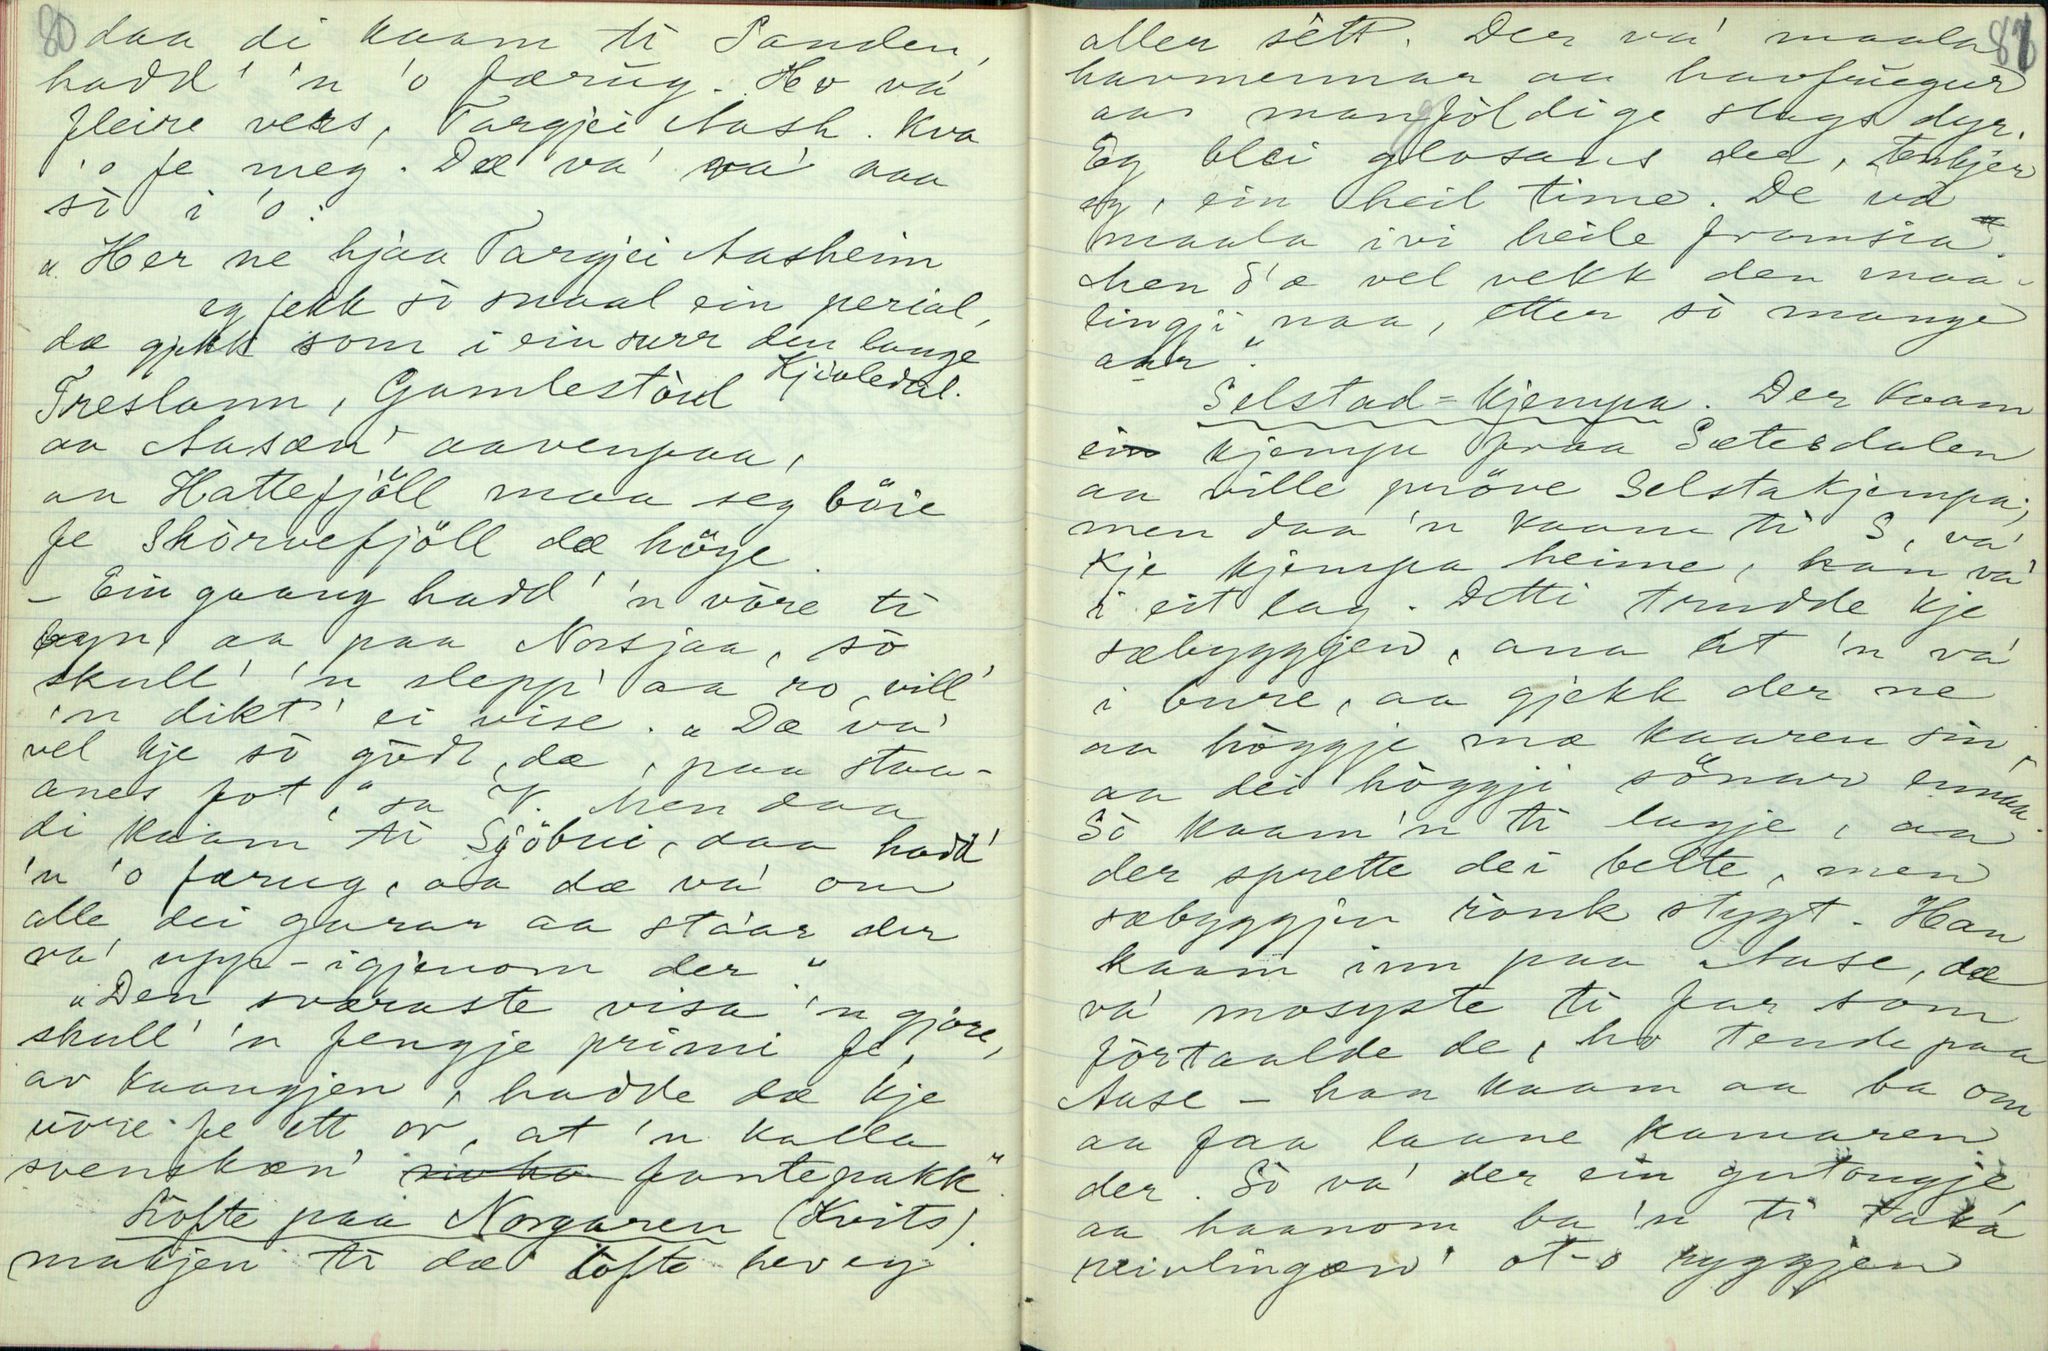 80
daa di kaam ti Sanden,
hadd' 'n 'o færug. Ho va'
fleire vers, Targjei Aash. kva
'o fe meg. Dæ va' va' aaa
so i 'o:
"Her ne hjaa Targjei Aasheim
eg fekk so snaal ein perial,
dæ gjekk som i ein surr den lange
Kjivledal.
Treslonn, Gamlestöul
aa Aasæn' aavenpaa,
aa Hattefjöll maa seg böie
fe Skorvefjöll dæ höge.
- Ein gaang hadd' 'n vore ti
byn, aa paa Norsjaa, so
skull' 'n sleppi aa ro, vill'
'n dikt' ei vise. "Dæ va'
vel kje so godt, dæ, paa staa-
anes fot," sa V. Men daa
di kaam ti Sjöbui, daa hadd'
'n 'o færug, aa dæ va' om
alle dei garar aa stáar der
va' upp-igjenom der"
"Den sværaste visa 'n gjore,
skull' 'n fengje primi fe,
av kaangjen, hadde dæ kje
vore fe ett or, at 'n kalla
svenskæn' fantepakk".
Lofte paa Norgaren (Kvits).
makjen ti dæ lofte hev eg
81
aller sétt. Der va' maala
havmennar aa havfruegur
aa mangföldige slags dyr.
Eg blei glosans der, tenkjer
eg, ein heil time. De va'
maala ivi heile framsia".
Men d'æ vel vekk den maa-
lingji naa, etter so mange
aar".
Selstad-kjempa. Der kaam
ein kjempe fraa Sætesdalen
aa ville pröve Selstakjempa;
men daa 'n kaam ti S, va'
kje kjempa heime, han va'
i eit lag. Detti trudde kje
sæbyggjen, ana at 'n va'
i bure, aa gjekk der ne
aa höggje mæ kaaren sin,
aa dei höggji sönar ennaa.
So kaam 'n ti lagje, aa
der sprette dei belte, men
sæbyggjen ronk stygt. Han
kaam inn paa Aase, dæ
va' mosyste ti far som
fortaalde de, ho tende paa
Aase - han kaam aa ba om
aa faa laane kamaren
der. So va' der ein gutongje
aa haanom ba 'n ti taka
reivlingæn' ot-o ryggjen